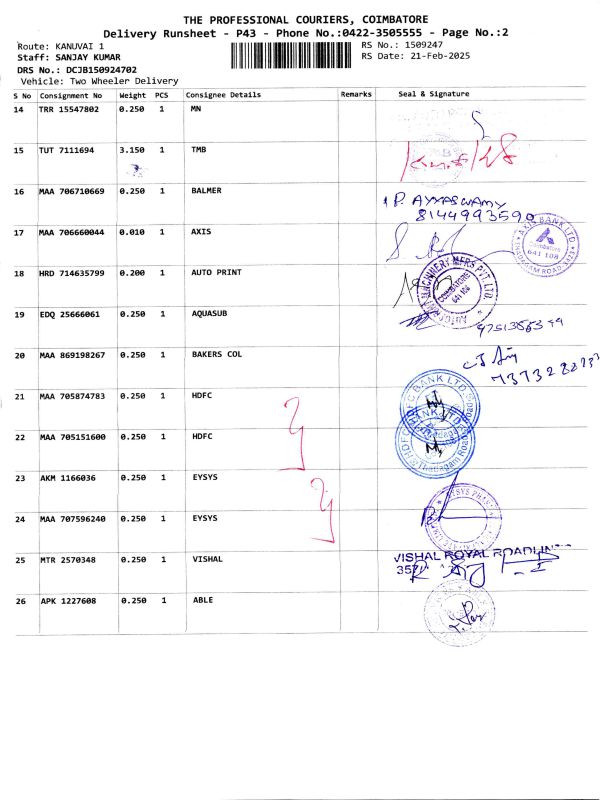 THE PROFESSIONAL COURIERS, COIMBATORE
Delivery Runsheet - P43 - Phone No.:0422-3505555 - Page No.:2
Route: KANUVAI 1
RS No.: 1509247
Staff: SANJAY KUMAR
RS Date: 21-Feb-2025
DRS No.: DCJB150924702
Vehicle: Two Wheeler Delivery
S No Consignment No Weight PCS Consignee Details Remarks Seal & Signature
14 TRR 15547802 0.250 1 MN
15 TUT 7111694 3.150 1 TMB
16 MAA 706710669 0.250 1 BALMER
P. AYYASWAMY
8144993590
17 MAA 706660044 0.010 1 AXIS
AXIS BANK LTD
Coimbatore
641 108
18 HRD 714635799 0.200 1 AUTO PRINT
MACHINERY MFRS PVT. LTD.
COIMBATORE
641 106
19 EDQ 25666061 0.250 1 AQUASUB
20 MAA 869198267 0.250 1 BAKERS COL
21 MAA 705874783 0.250 1 HDFC
HDFC BANK LTD
22 MAA 705151600 0.250 1 HDFC
Thadagam Road
23 AKM 1166036 0.250 1 EYSYS
24 MAA 707596240 0.250 1 EYSYS
25 MTR 2570348 0.250 1 VISHAL
VISHAL ROYAL
26 APK 1227608 0.250 1 ABLE